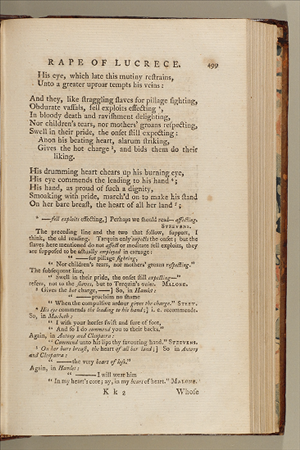 RAPE OF LUCRECE. 499
His eye, which late this mutiny restrains,
Unto a greater uproar tempts his veins:
And they, like straggling slaves for pillage fighting,
Obdurate vassals, fell exploits effecting ¹,
In bloody death and ravishment delighting,
Nor children's tears, nor mothers' groans respecting,
Swell in their pride, the onset still expecting:
Anon his beating heart, alarum striking,
Gives the hot charge ², and bids them do their
liking.
His drumming heart chears up his burning eye,
His eye commends the leading to his hand ³;
His hand, as proud of such a dignity,
Smoaking with pride, march'd on to make his stand
On her bare breast, the heart of all her land ⁴;
¹ —fell exploits effecting,] Perhaps we should read—affecting.
STEEVENS.
The preceding line and the two that follow, support, I
think, the old reading. Tarquin only expects the onset; but the
slaves here mentioned do not affect or meditate fell exploits, they
are supposed to be actually employed in carnage:
" —— for pillage fighting,
" Nor children's tears, nor mothers' groans respecting."
The subsequent line,
" Swell in their pride, the onset still expecting—"
refers, not to the slaves, but to Tarquin's veins. MALONE.
² Gives the hot charge,—] So, in Hamlet:
" —— proclaim no shame
" When the compulsive ardour gives the charge." STEEV.
³ His eye commends the leading to his hand;] i. e. recommends.
So, in Macbeth:
" I wish your horses swift and sure of foot,
" And so I do commend you to their backs."
Again, in Antony and Cleopatra:
" Commend unto his lips thy favouring hand." STEEVENS.
⁴ On her bare breast, the heart of all her land;] So in Antony
and Cleopatra:
" —— the very heart of loss."
Again, in Hamlet:
" —— I will wear him
" In my heart's core; ay, in my heart of heart." MALONE.
K k 2 Whose